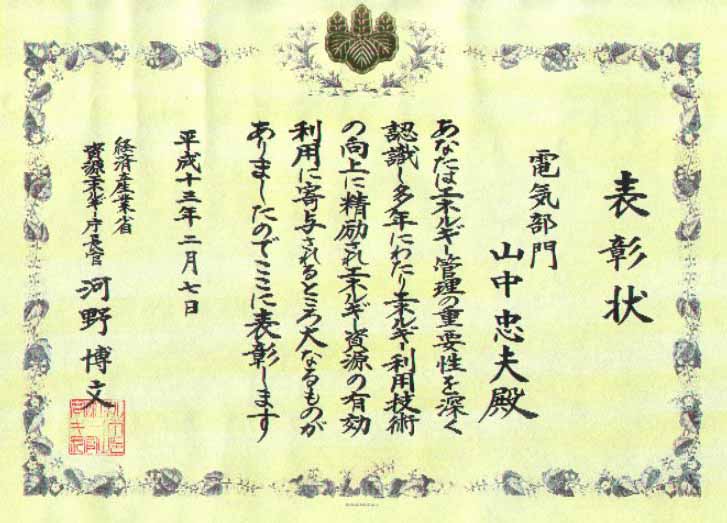 表彰状
電気部門
山中忠夫殿
あなたはエネルギー管理の重要性を深く
認識し多年にわたりエネルギー利用技術
の向上に精励されエネルギー資源の有効
利用に寄与されるところ大なるものが
ありましたのでここに表彰します
平成十三年二月七日
経済産業省
資源エネルギー庁長官
河野博文